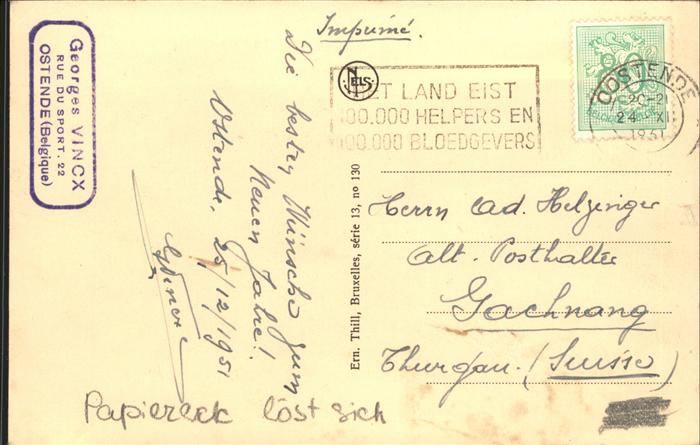 Georges VINCX
RUE DU SPORT. 22
OSTENDE (Belgique)
Imprimé.
Die besten Wünsche zum
Neuen Jahre!
Ostende, 25/12/1951
GVincx
NELS
HET LAND EIST
100.000 HELPERS EN
100.000 BLOEDGEVERS
OOSTENDE
20-21
24 XI
1951
Ern. Thill, Bruxelles, série 13, nº 130
Herrn Ad. Helzinger
Alt. Posthalter
Gachnang
Thurgau. (Suisse)
Papiereck löst sich